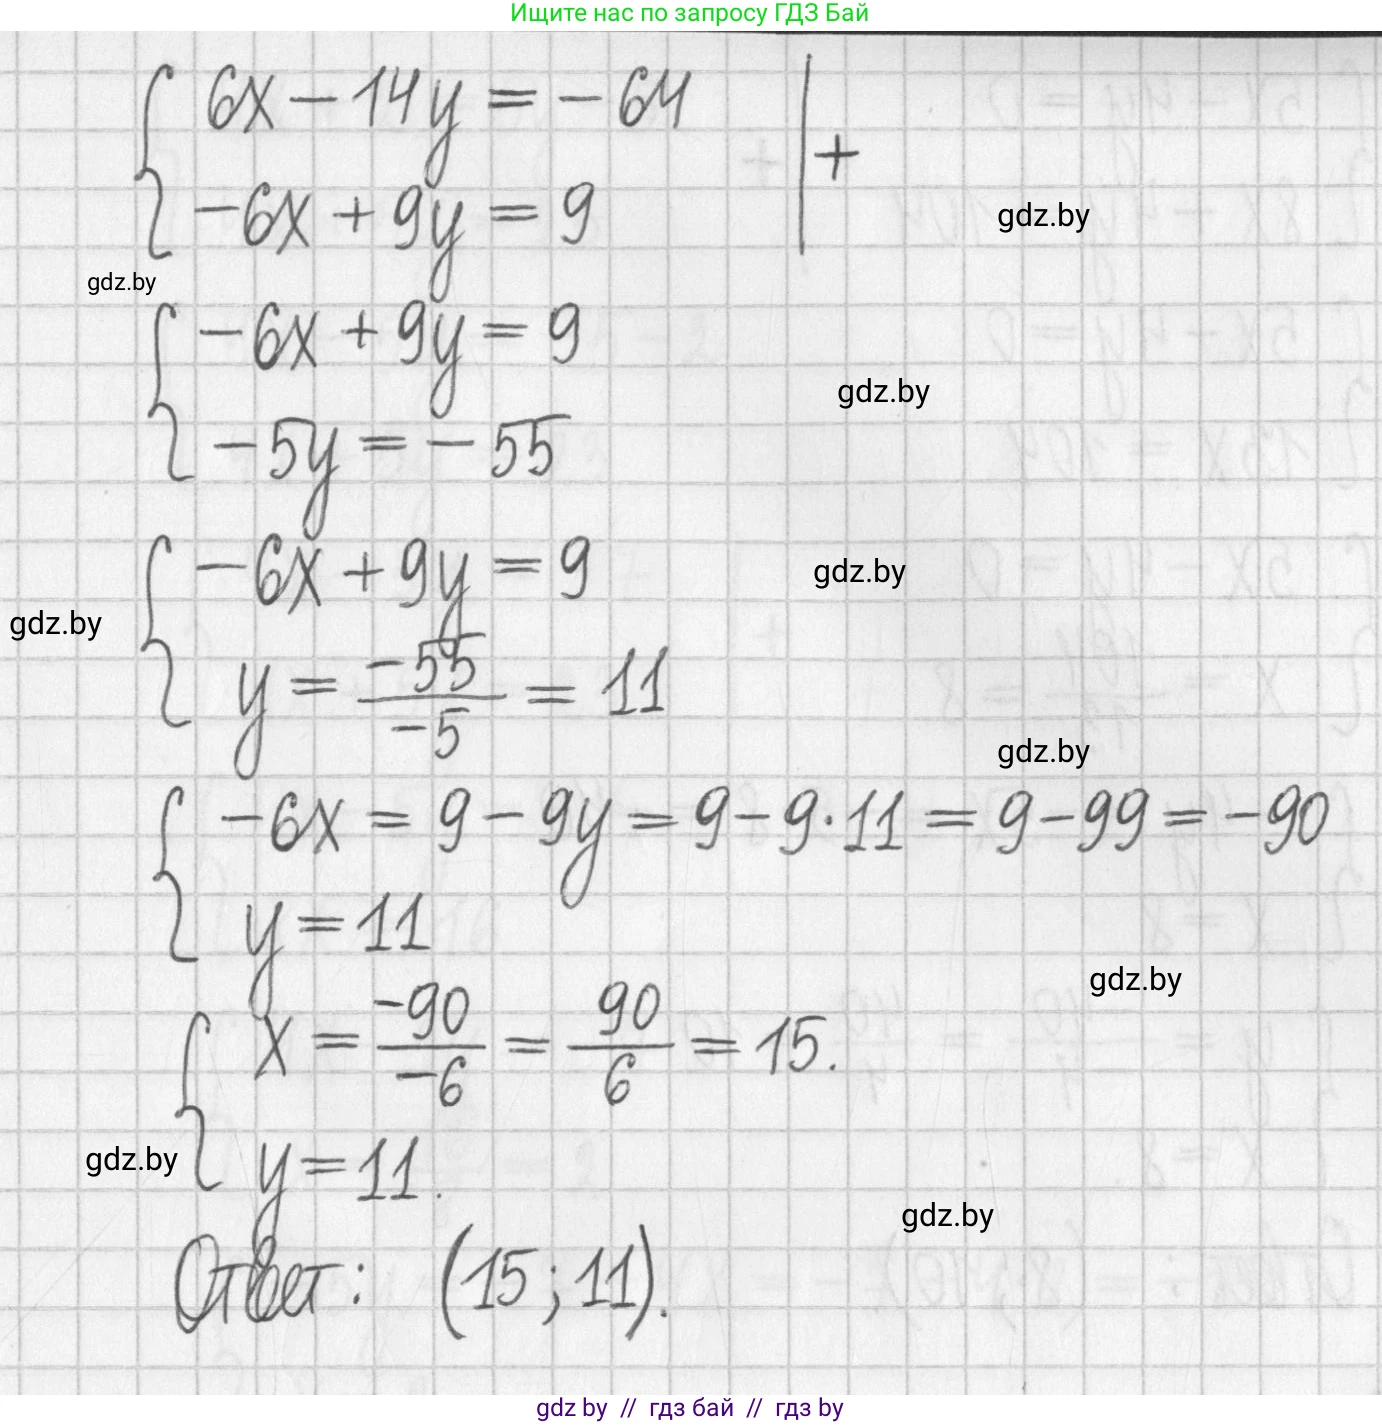 Ищите нас по запросу ГДЗ Бай
6x - 14y = - 64
+
-6x + 9y = 9
gdz.by
gdz.by
-6x + 9y = 9
gdz.by
-5y = -55
-6x + 9y = 9
gdz.by
gdz.by
y = -55/-5 = 11
gdz.by
-6x = 9 - 9y = 9 - 9·11 = 9 - 99 = -90
y = 11
gdz.by
x = -90/-6 = 90/6 = 15.
y = 11.
gdz.by
gdz.by
Ответ: (15; 11).
gdz by // гдз бай // гдз by